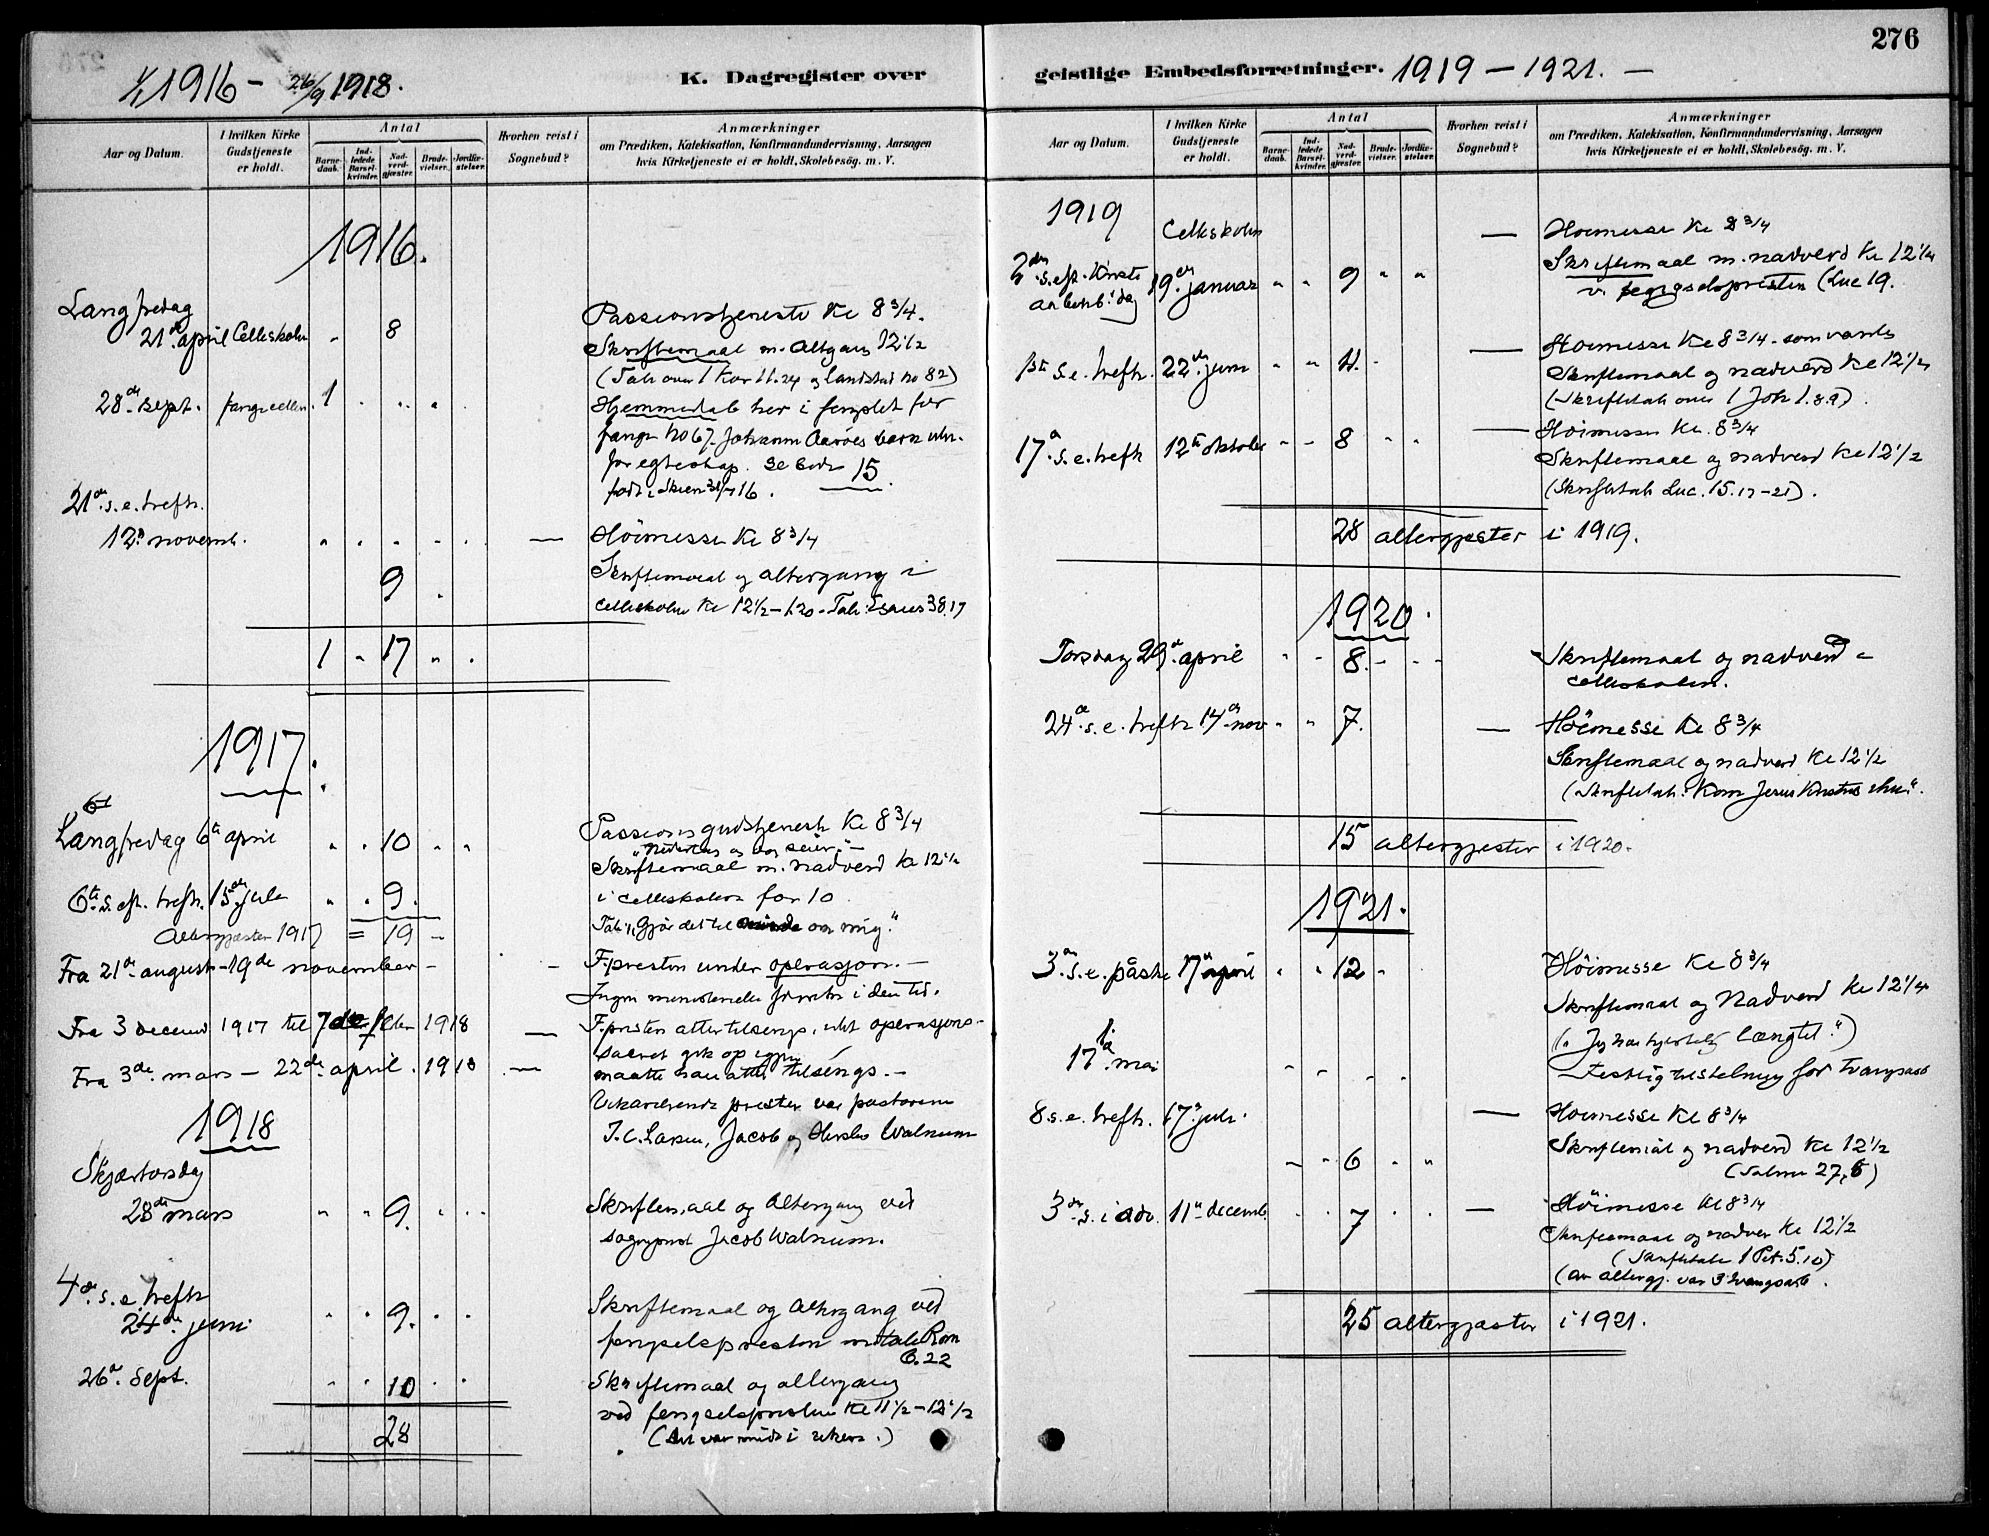 1/1 1916 – 26/9 1918.
K. Dagregister over
Aar og Datum.
I hvilken Kirke Gudstjeneste er holdt.
Antal
Barne-daab.
Ind-ledede Barsel-kvinder.
Nad-verd-gjæster.
Brude-vielser.
Jordfæ-stelser.
Hvorhen reist i Sognebud?
Anmærkninger
om Prædiken, Katekisation, Konfirmandundervisning, Aarsagen
hvis Kirketjeneste ei er holdt, Skolebesøg. m. V.
1916.
Langfredag
21de april Celleskolen " 8
Passionstjeneste Kl 8 3/4.
Skriftemaal m. Altgang 12 1/2
(Tale over 1 Kor 11.24 og Landstad no 82)
28de sept. fangecellen. 1
Hjemmedaab her i fengslet for
fange No 67. Johanne Aaröes barn
for egteskap. Se 15.
født i Skien 16.
21de s.e. trefh.
12te novemb.
Höimesse Kl 8 3/4
9
Skriftemaal og altergang i
celleskolen Kl 12 1/2 – 1.20. Tale: Esaias 38.17
1 " 17 " "
1917.
Langfredag 6te april " " 10 " "
Passionsgudstjeneste Kl 8 3/4
Skriftemaal m. nadverd kl 12 1/2
6te s. eft. trefh. 15de jule " " 9.
i celleskolen for 10
Altergjæster 1917 = 19 –
Tale: "Gjör det til minde om mig."
Fra 21de august – 19de november –
F.presten under operasjon. –
Ingen ministerielle i den tid.
Fra 3 decemb 1917 til 7de febr 1918
F.presten atter tilsengs, idet operasjons-
saaret gik op igjen
Fra 3de mars – 22de april. 1918
maatte atter tilsengs. –
Vikarierende prester var pastorene
1918
I. C. Larsen, Jacob og Walnum
Skjærtorsdag
28de mars " " 9.
Skriftemaal og Altergang ved
sogneprest Jacob Walnum.
4de s. e. trefh
24de juni " " 9.
Skriftemaal og Altergang ved
fengselspresten m tale Rom
6.22
26de Sept. " " 10
Skriftemaal og altergang
ved fengselspresten Kl 11 1/2 – 12 1/2
28
(Det var midt i uken.)
276
geistlige Embedsforretninger. 1919 – 1921. –
Aar og Datum.
I hvilken Kirke Gudstjeneste er holdt.
Antal
Barne-daab.
Ind-ledede Barsel-kvinder.
Nad-verd-gjæster.
Brude-vielser.
Jordfæ-stelser.
Hvorhen reist i Sognebud?
Anmærkninger
om Prædiken, Katekisation, Konfirmandundervisning, Aarsagen
hvis Kirketjeneste ei er holdt, Skolebesøg. m. V.
1919
Celleskolen
Höimesse Kl 8 3/4
2den s. eft. Kristi
åbenb. dag 19de januar " " 9 " "
Skriftemaal m. nadverd Kl 12 1/4
v. fengselspresten (Luc 19.
1ste s. e. trefh. 22de juni " " 11.
Höimesse Kl 8 3/4 – som vanlig
Skriftemaal og nadverd Kl 12 1/2
(Skriftetale over 1 Joh 1.8.9).
17de s. e. trefh 12te oktober " " 8 " "
Höimesse Kl. 8 3/4
Skriftemaal og nadverd Kl 12 1/2
(Skriftetale Luc. 15.17–21).
28 altergjester i 1919.
1920.
Torsdag 29de april " " 8. –
Skriftemaal og nadverd i
celleskolen.
24de s. e. trefh 14de nov " " 7.
Höimesse Kl 8 3/4
Skriftemaal og nadverd Kl 12 1/2
(Skriftetale: Kom Jesus Kristus ihu".
15 altergjester i 1920.
1921.
3de s. e. påske 17de april " " 12 "
Höimesse Kl 8 3/4
Skriftemaal og Nadverd Kl 12 1/4
(" Jeg har hjertelig længtet")
17de mai
Festlig tilstelning for tvangsarb
8 s. e. trefh. 17de juli.
Höimesse Kl 8 3/4
" " 6 " "
Skriftemål og nadverd Kl 12 1/2
(Salme 27,8)
3de s. i adv. 11te decemb. 7
Höimesse Kl 8 3/4
Skriftemaal og nadver Kl 12 1/2
(Skriftetale 1 Pet. 5.10)
(av altergj. var 3 tvangsarb.
25 altergjæster i 1921.